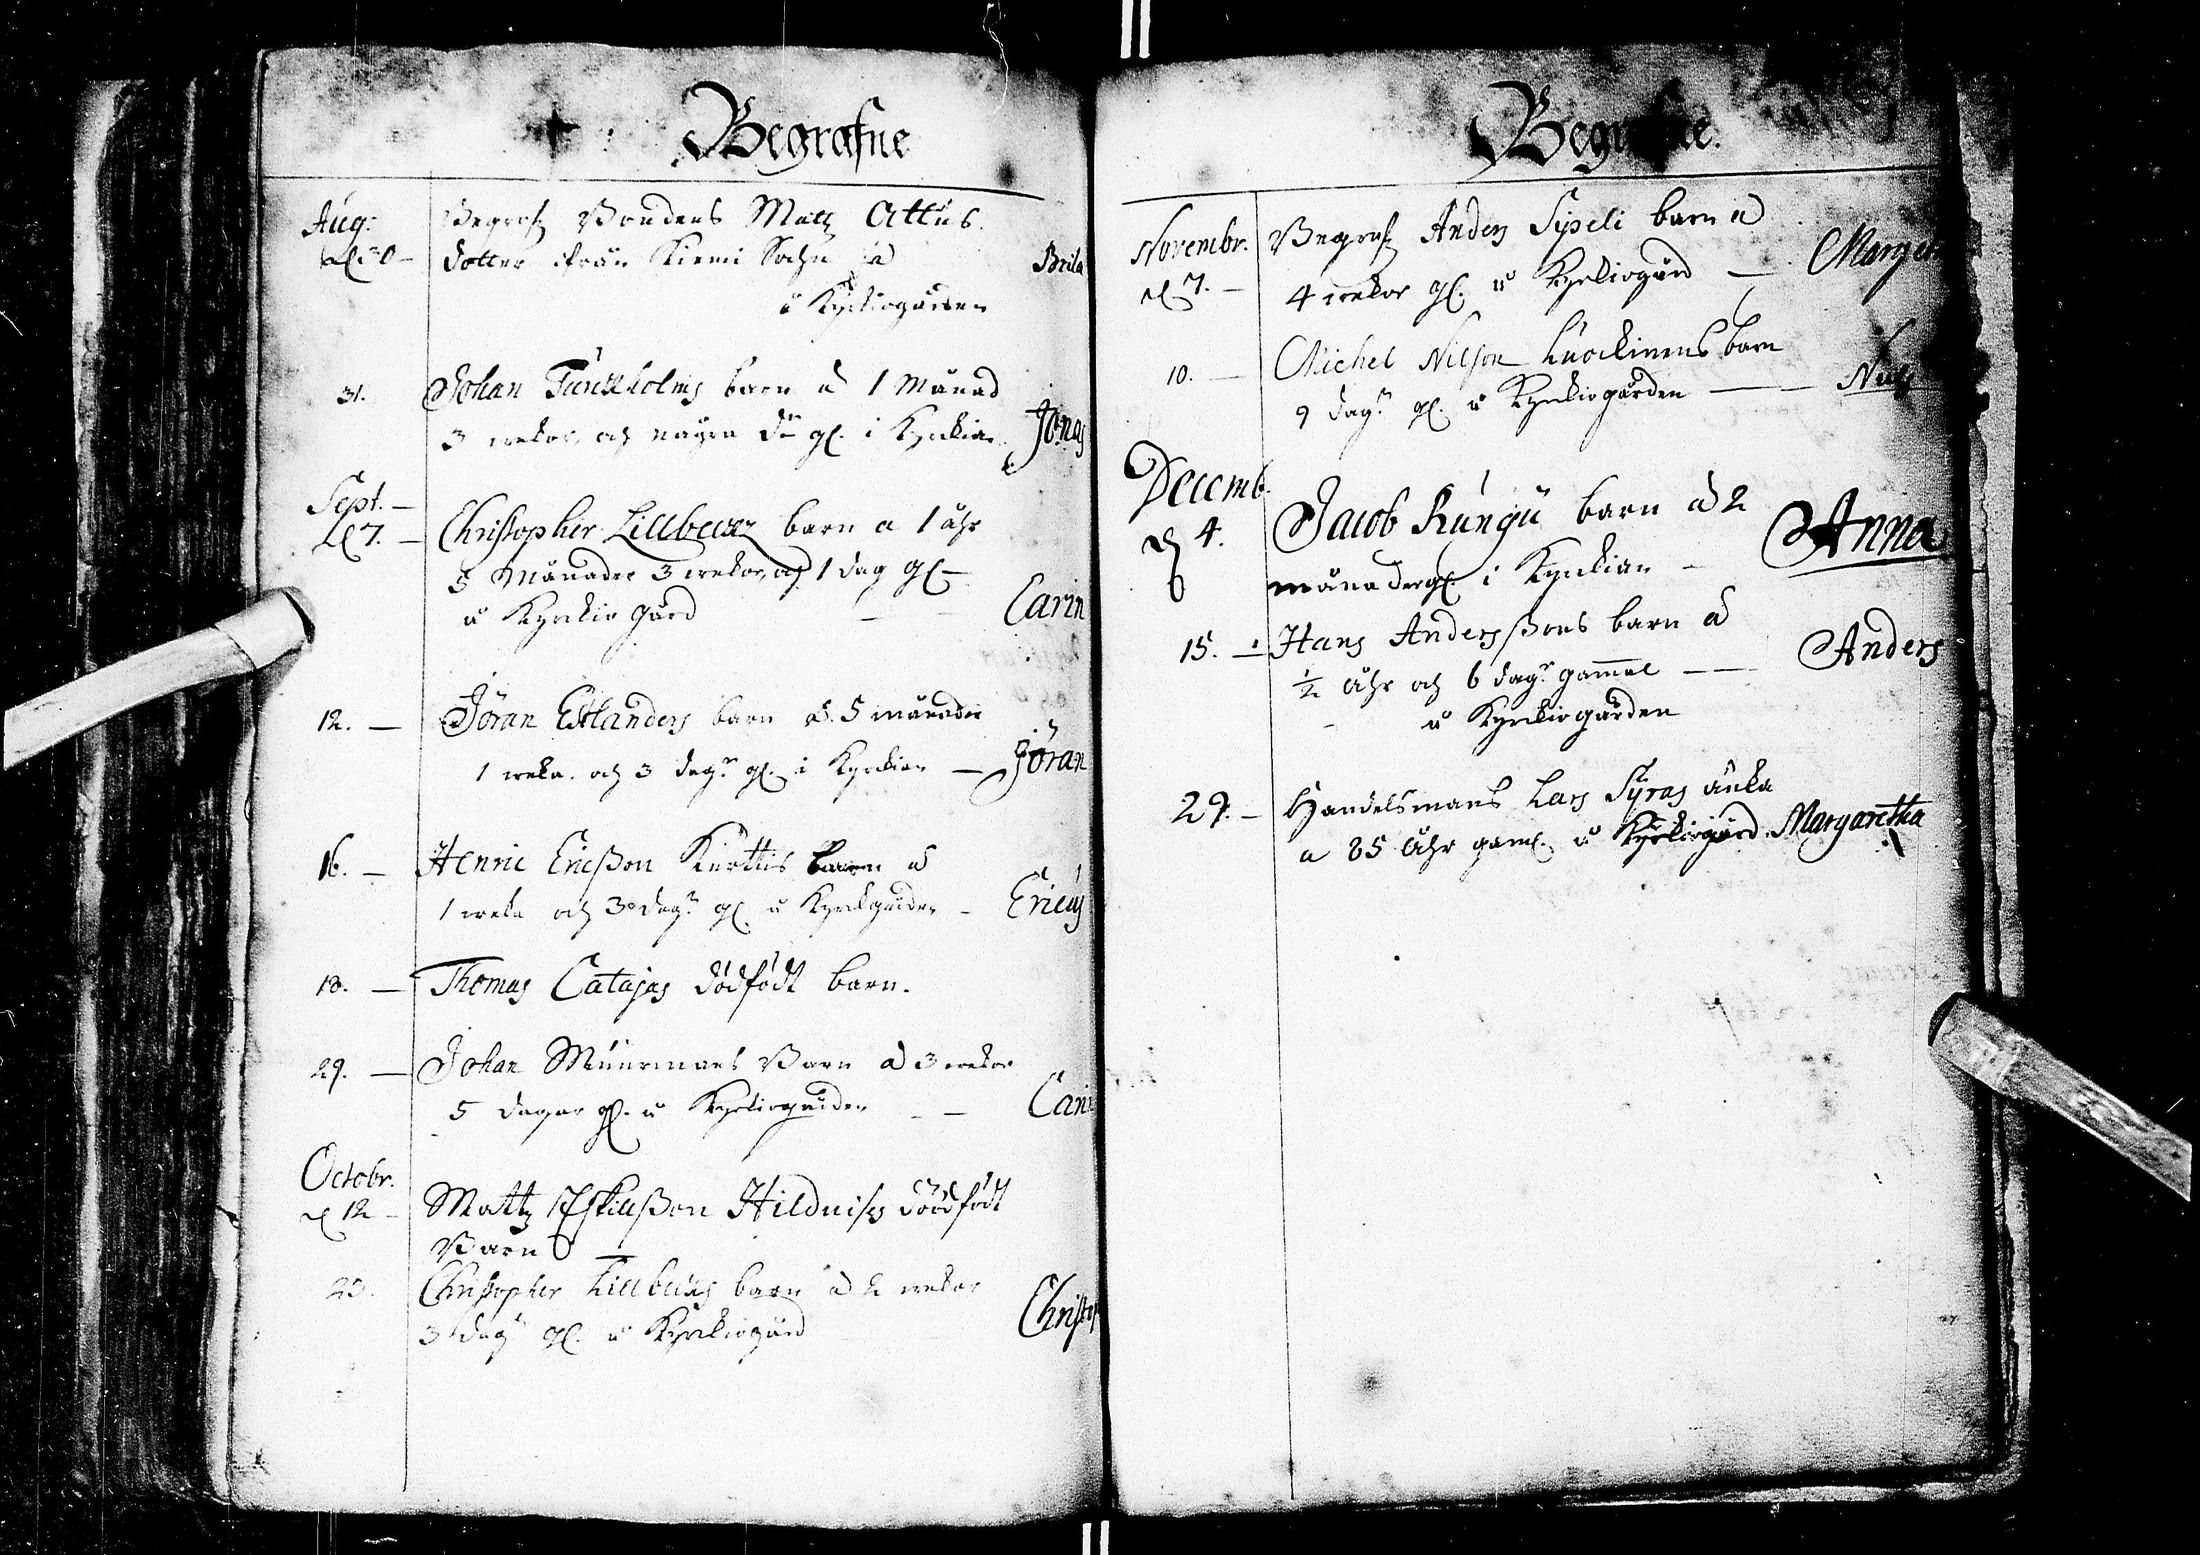 Begrafne
Aug:
d. 30 — Begrofz Bondens Matz Attus
dotter ifrån Kiemi Sochn Brita
å Kyrkiogården
31. Johan barn 1 Månad
3 wekor och några gl. i Kyrkian Jonas
Sept. —
d. 7. — Christopher Lillbeckz barn a 1 åhr
3 Månader 3 wekor, och 1 dag gl —
å Kyrkiogård — Carin
12. — Jöran Estlanders barn 5 månader
1 weka och 3 dagr gl. i Kyrkian — Jöran
16. — Henric Ericßon Kurttis barn
1 weka och 3 dagr gl. å Kyrkgården — Ericus
18. — Thomas Catajas dödfödt barn.
29. — Johan Muurmans Barn 3 wekor
5 dagar gl. å Kyrkiogården — — Carin
Octobr.
d. 12 — Mattz Eskillßon dödfödt
Barn
23. Christopher Lillbeckz barn 2 wekor
3 dagr gl. å Kyrkiogård Christop
Begrafne.
Novembr. Begrofz Anders Sipeli barn
d. 7. — 4 wekor gl. å Kyrkiogård — Marget
10. — Michel Nilsson Luockinens barn
9 dagr gl. å Kyrkiogården — — Nils
Decemb.
d. 4. Jacob Rungu barn 2 Anna
månader gl. i Kyrkian —
15. — Hans Anderssßons barn Anders
½ åhr och 6 dagr gammal — —
å Kyrkiogården
29. — Handelsmans Lars änka
a 85 åhr gaml. å Kyrkiogård. Margaretha